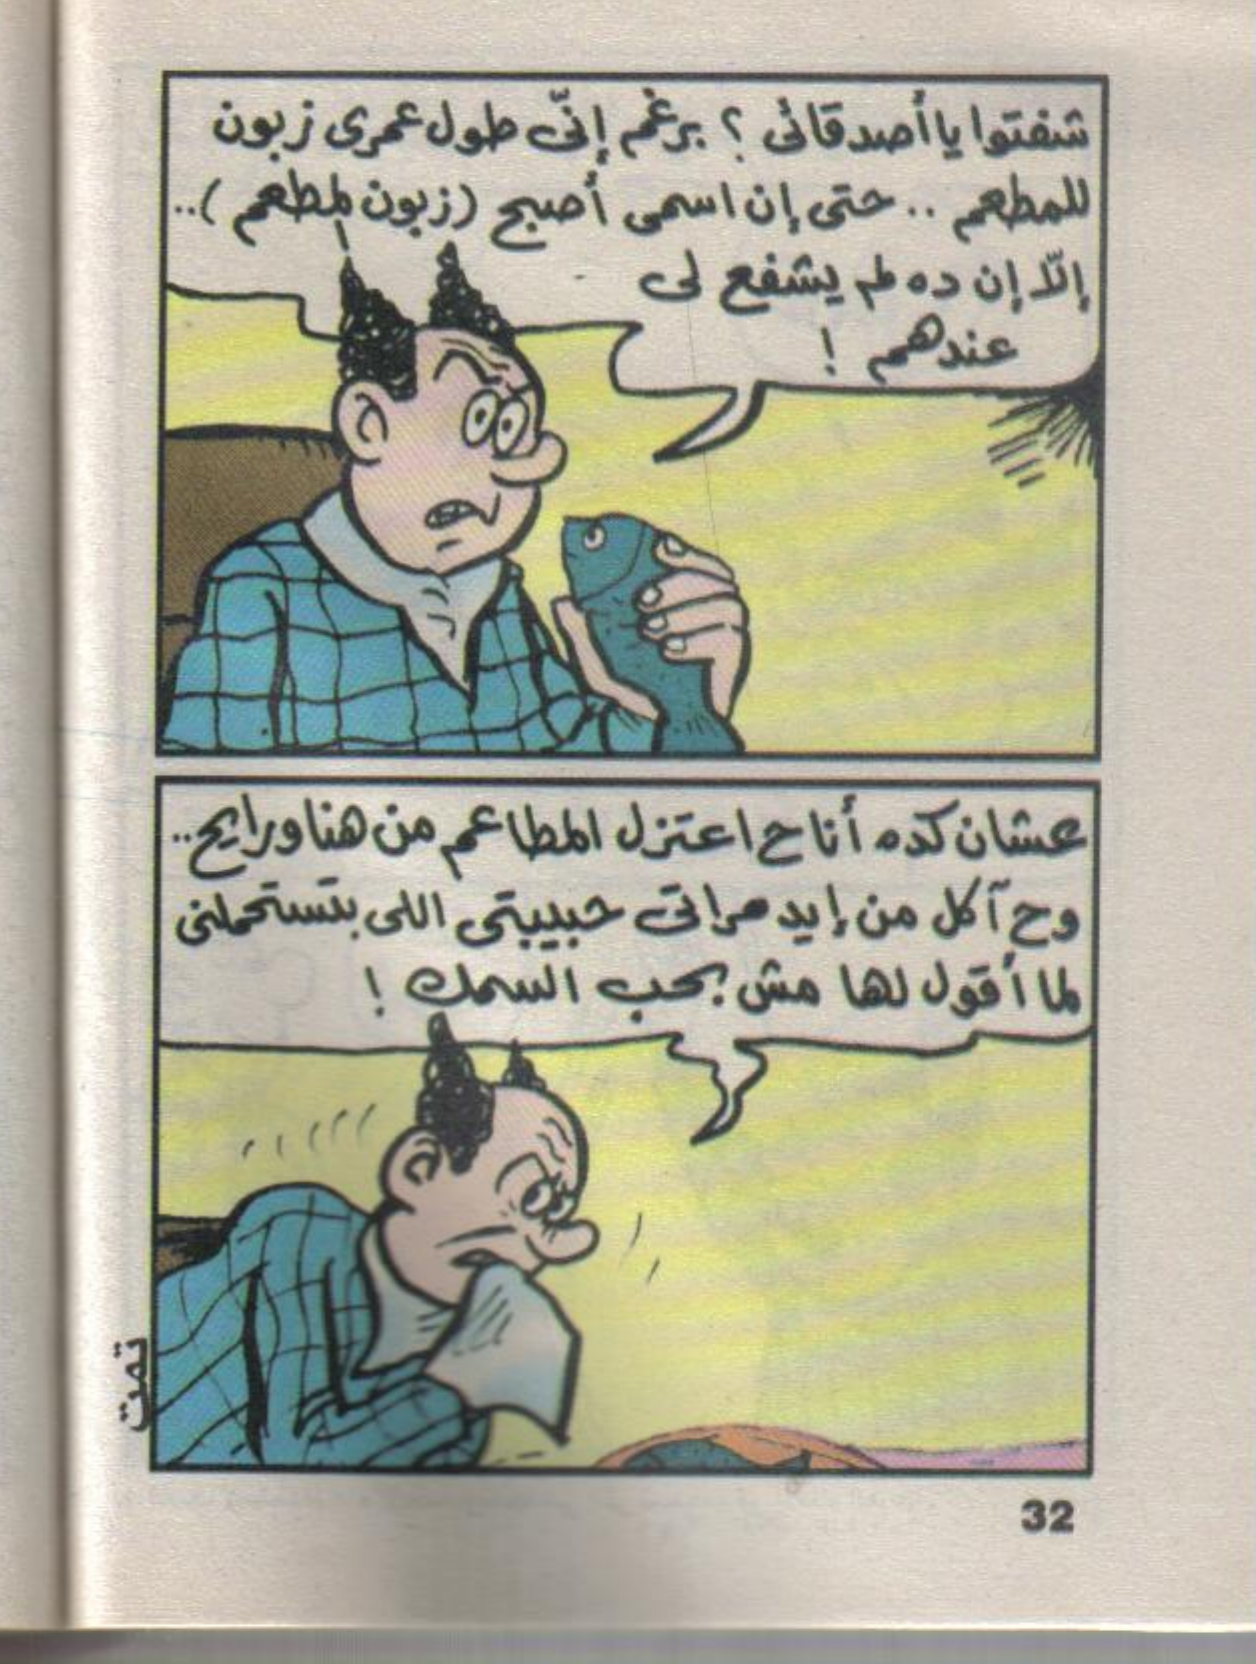 شفتوا يا أصدقائى ؟ برغم إنّى طول عمرى زبون
للمطعم .. حتى إن اسمى أصبح (زبون لمطعم) ..
إلّا إن ده لم يشفع لى
عندهم !
عشان كده أنا ح اعتزل المطاعم من هنا ورايح ..
وح آكل من إيد مراتى حبيبتى اللى بتستحملنى
لما أقول لها مش بحب السمك !
تمت
32